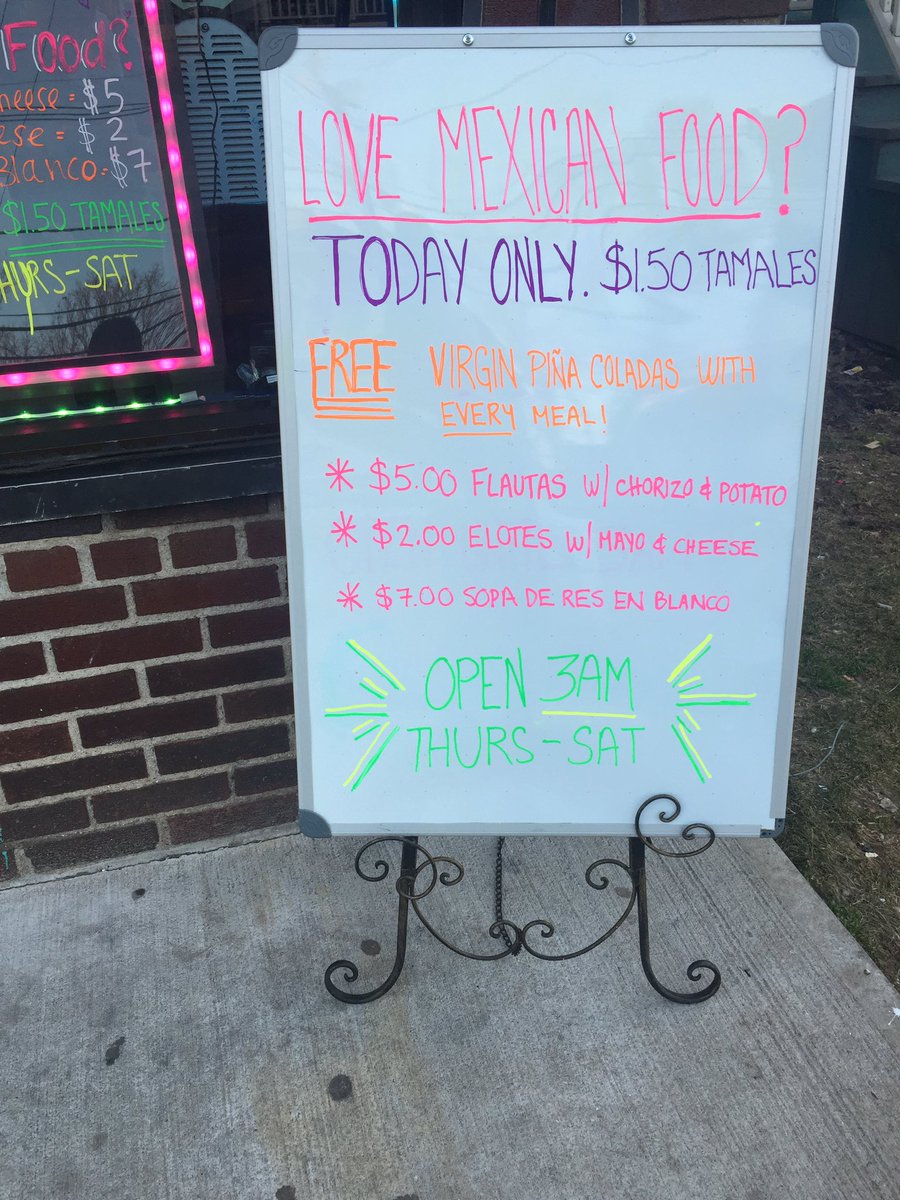 Food?
cheese = $5
ese = $2
Blanco = $7
$1.50 TAMALES
THURS-SAT
LOVE MEXICAN FOOD?
TODAY ONLY. $1.50 TAMALES
FREE VIRGIN PIÑA COLADAS WITH
EVERY MEAL!
* $5.00 FLAUTAS W/ CHORIZO & POTATO
* $2.00 ELOTES W/ MAYO & CHEESE
* $7.00 SOPA DE RES EN BLANCO
OPEN 3AM
THURS-SAT